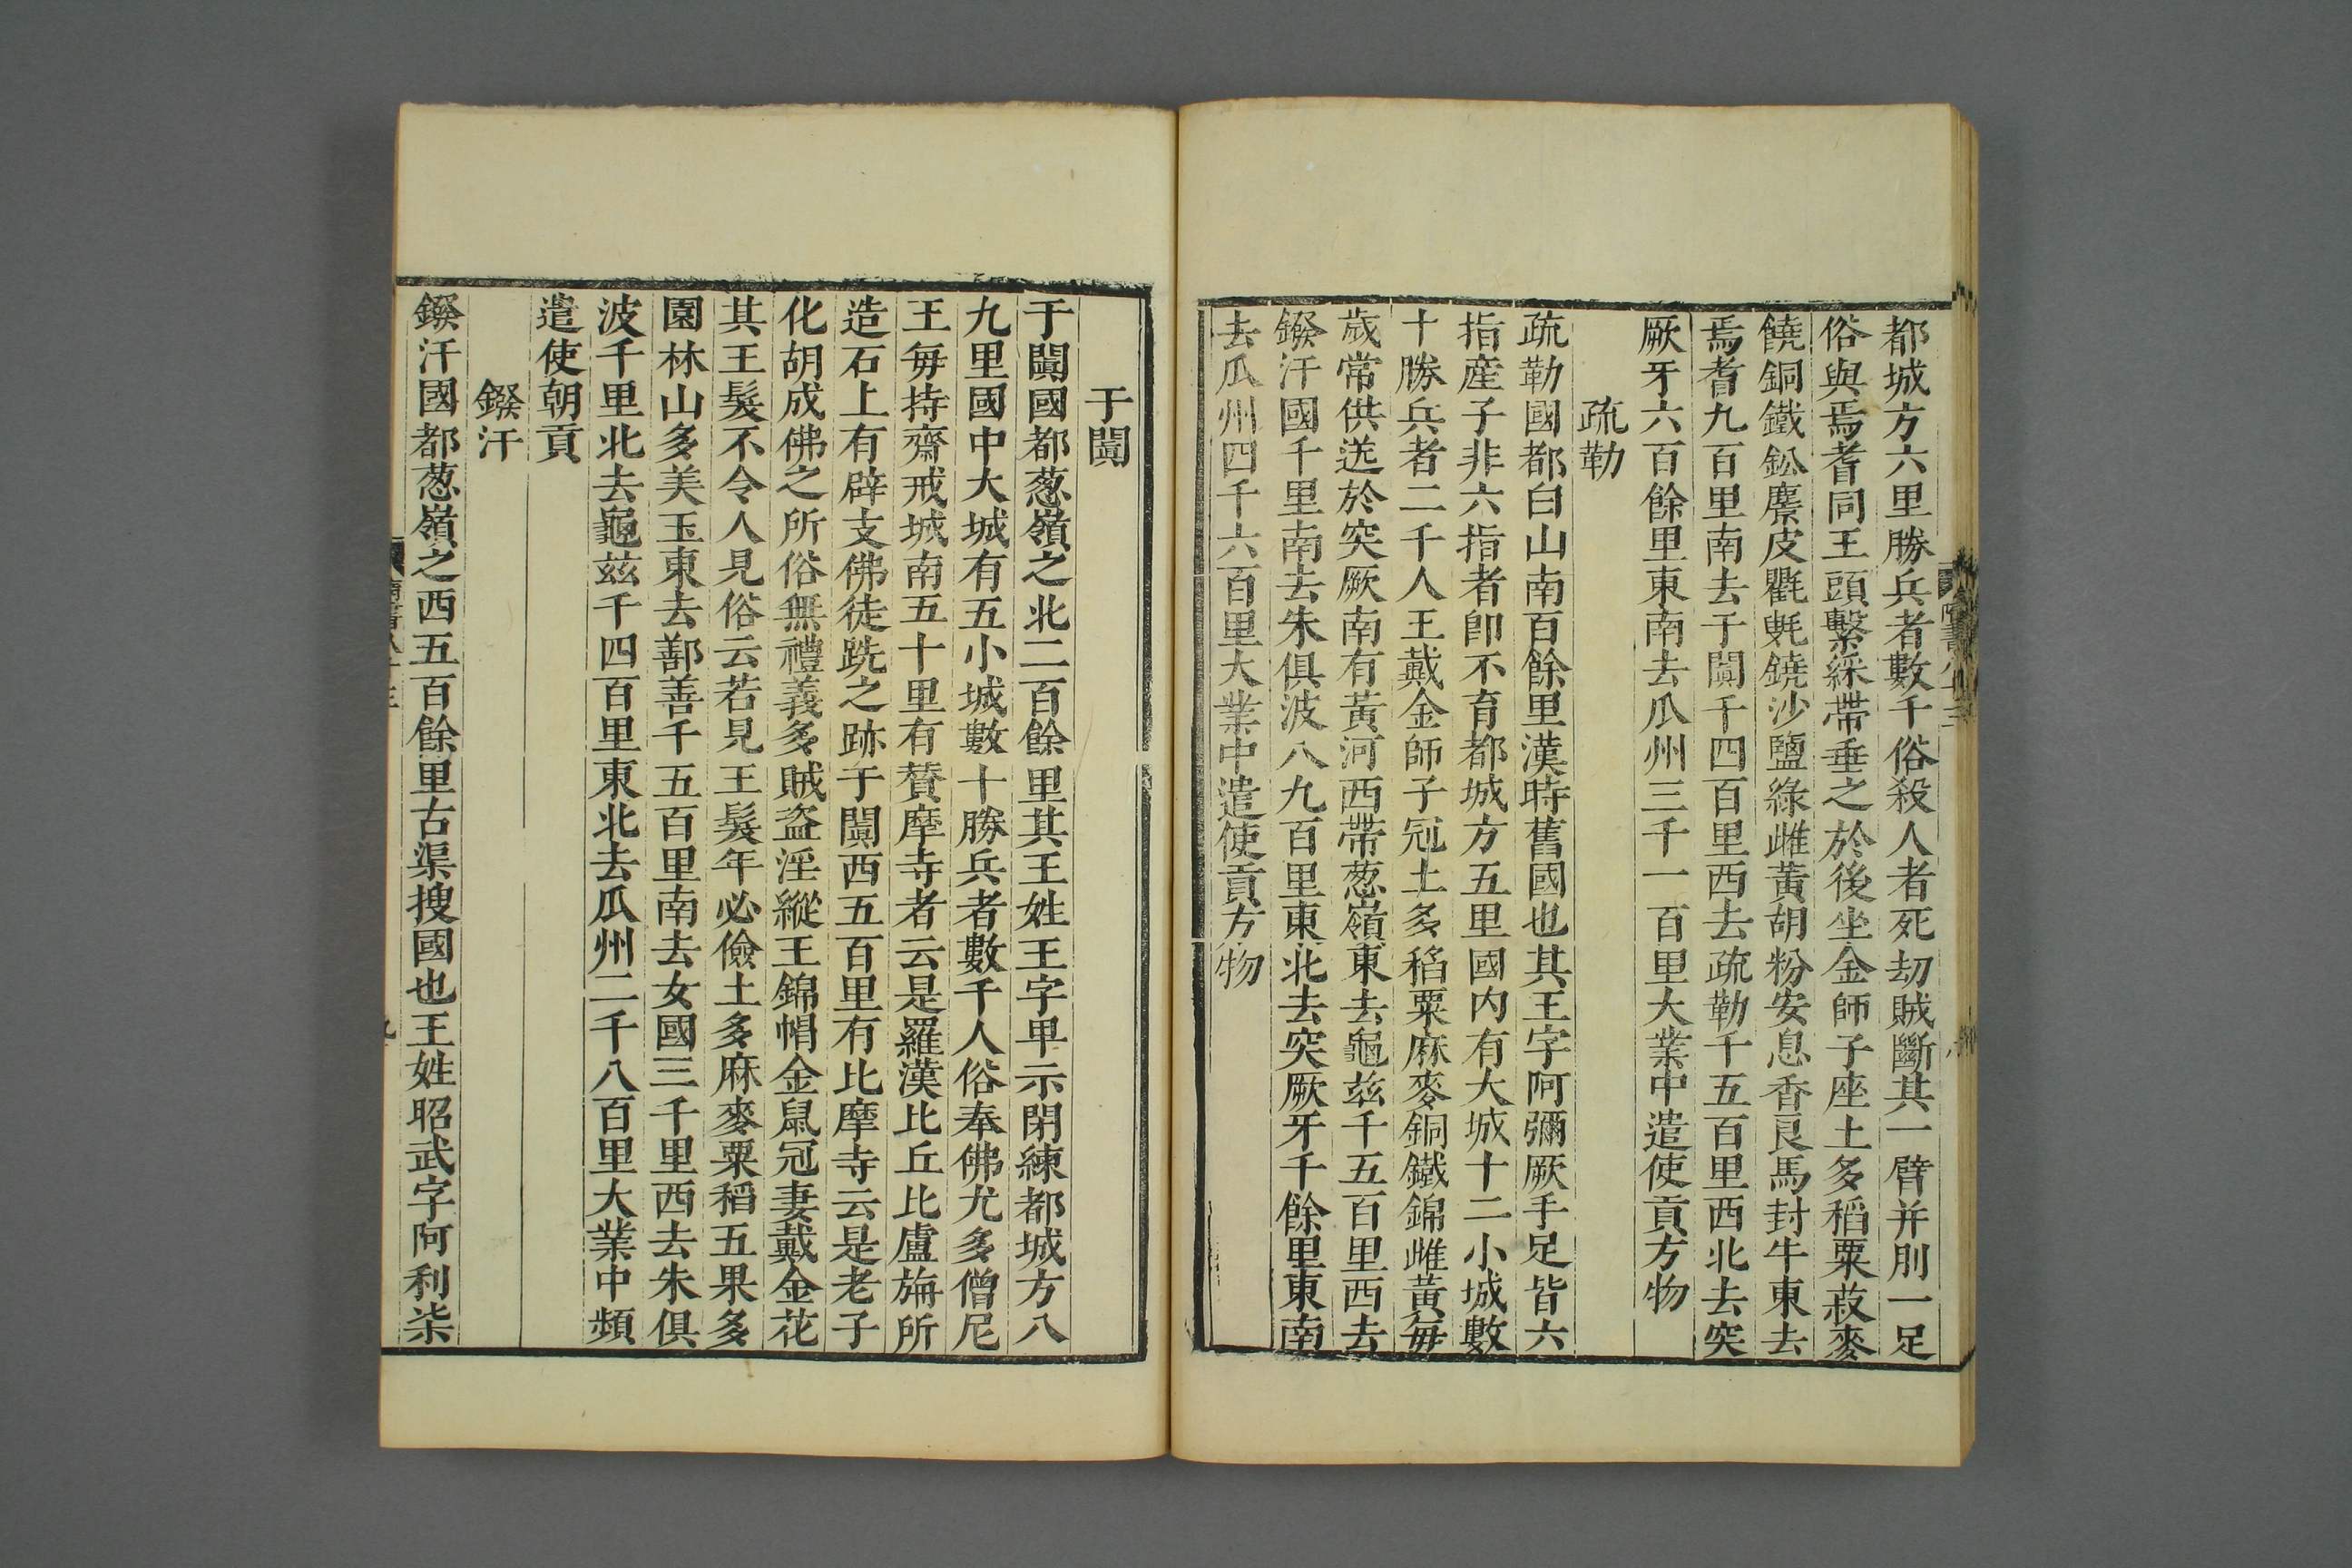 都城方六里勝兵者數千俗殺人者死劫賊斷其一臂并刖一足
俗與焉耆同王頭繫綵帶垂之於後坐金師子座土多稻粟菽麥
饒銅鐵鈆麖皮氍毹鐃沙鹽綠雌黃胡粉安息香良馬封牛東去
焉耆九百里南去于闐千四百里西去疏勒千五百里西北去突
厥牙六百餘里東南去瓜州三千一百里大業中遣使貢方物
疏勒
疏勒國都白山南百餘里漢時舊國也其王字阿彌厥手足皆六
指產子非六指者卽不育都城方五里國內有大城十二小城數
十勝兵者二千人王戴金師子冠土多稻粟麻麥銅鐵錦雌黃每
歲常供送於突厥南有黃河西帶葱嶺東去龜兹千五百里西去
鏺汗國千里南去朱俱波八九百里東北去突厥牙千餘里東南
去瓜州四千六百里大業中遣使貢方物
于闐
于闐國都葱嶺之北二百餘里其王姓王字甲示閉練都城方八
九里國中大城有五小城數十勝兵者數千人俗奉佛尤多僧尼
王每持齋戒城南五十里有贊摩寺者云是羅漢比丘比盧旃所
造石上有辟支佛徒跣之跡于闐西五百里有比摩寺云是老子
化胡成佛之所俗無禮義多賊盜淫縱王錦帽金鼠冠妻戴金花
其王髮不令人見俗云若見王髮年必儉土多麻麥粟稻五果多
園林山多美玉東去鄯善千五百里南去女國三千里西去朱俱
波千里北去龜兹千四百里東北去瓜州二千八百里大業中頻
遣使朝貢
鏺汗
鏺汗國都葱嶺之西五百餘里古渠搜國也王姓昭武字阿利柒